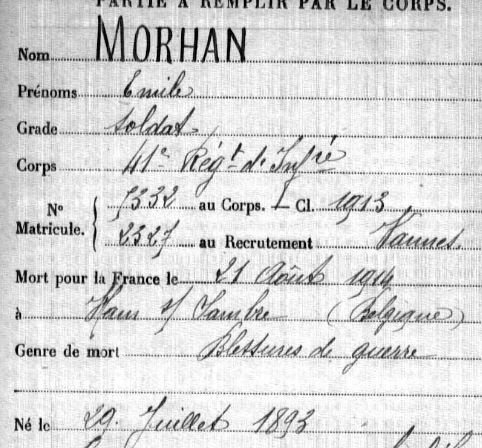 PARTIE A REMPLIR PAR LE CORPS.
Nom MORHAN
Prénoms Emile
Grade Soldat
Corps 41e Régt d'Infrie
No Matricule. 5332 au Corps. — Cl. 1913
2327 au Recrutement Vannes
Mort pour la France le 21 Août 1914
à Ham s/ Sambre (Belgique)
Genre de mort Blessures de guerre
Né le 29 Juillet 1893